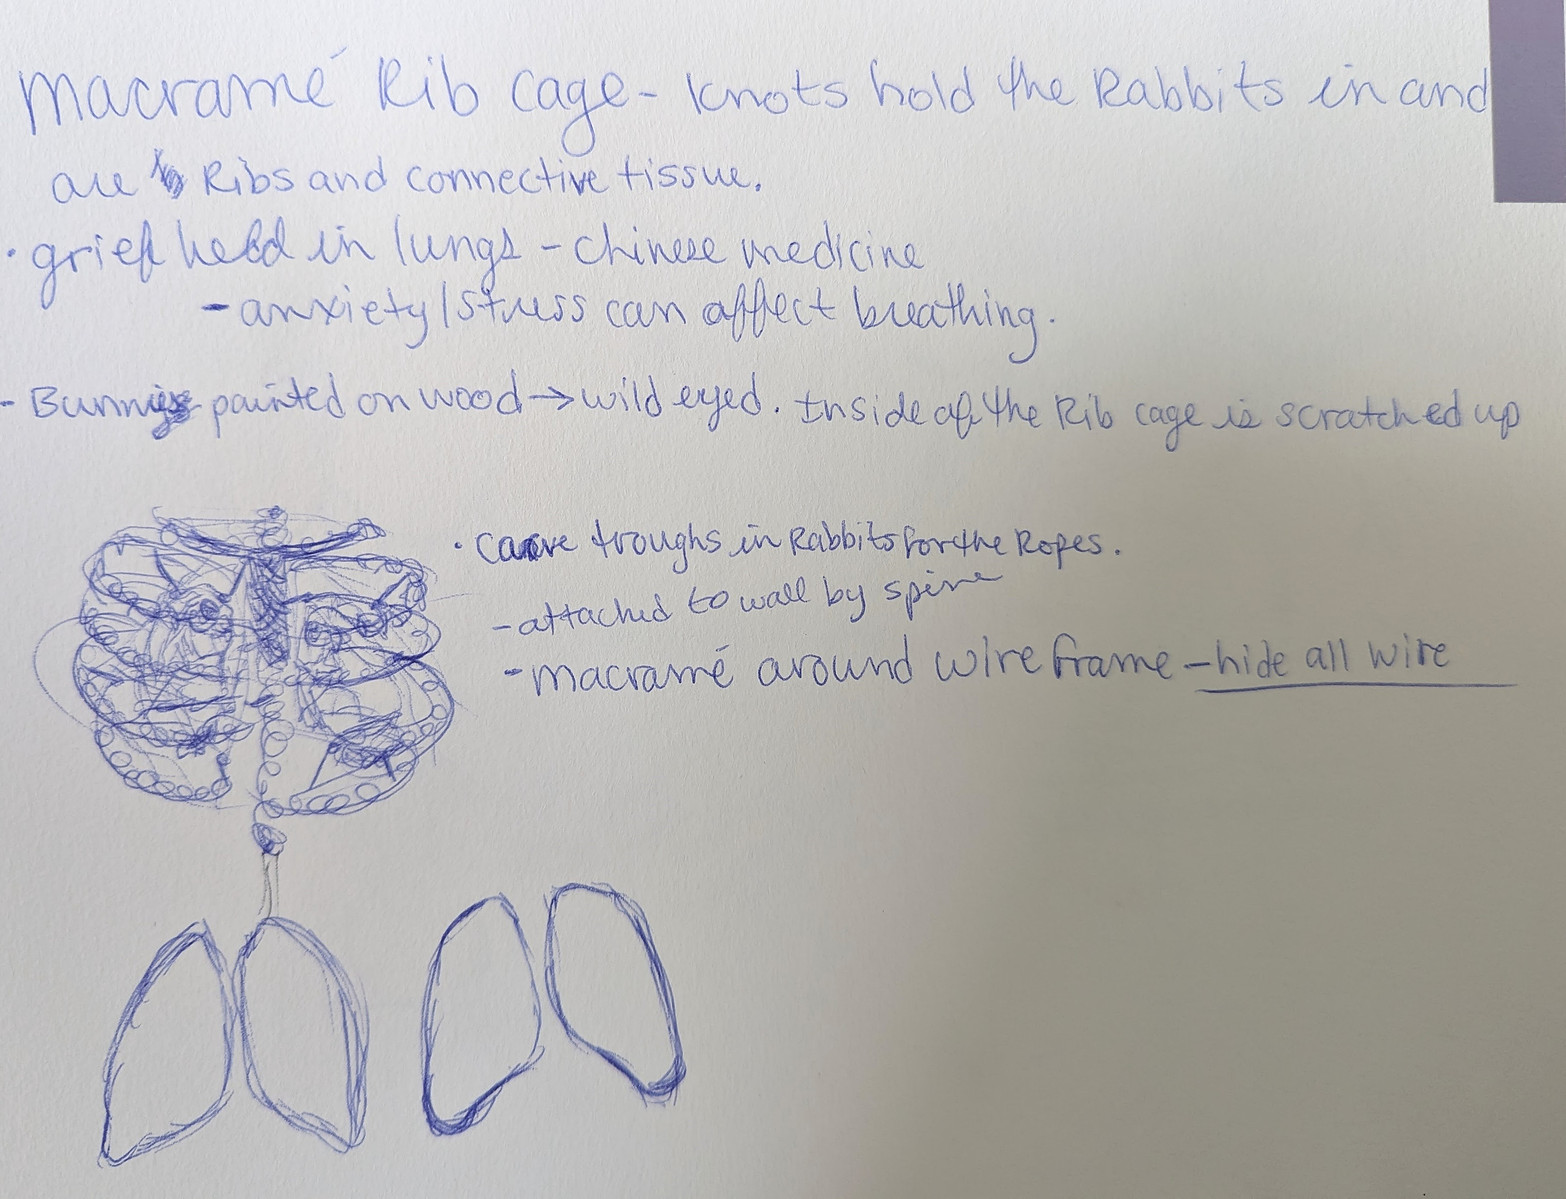 macramé Rib cage - knots hold the Rabbits in and
are Ribs and connective tissue.
• grief held in lungs - chinese medicine
- anxiety/stress can affect breathing.
- Bunnies painted on wood → wild eyed. Inside of the Rib cage is scratched up
• Carve troughs in Rabbits for the Ropes.
- attached to wall by spine
- macramé around wire frame - hide all wire